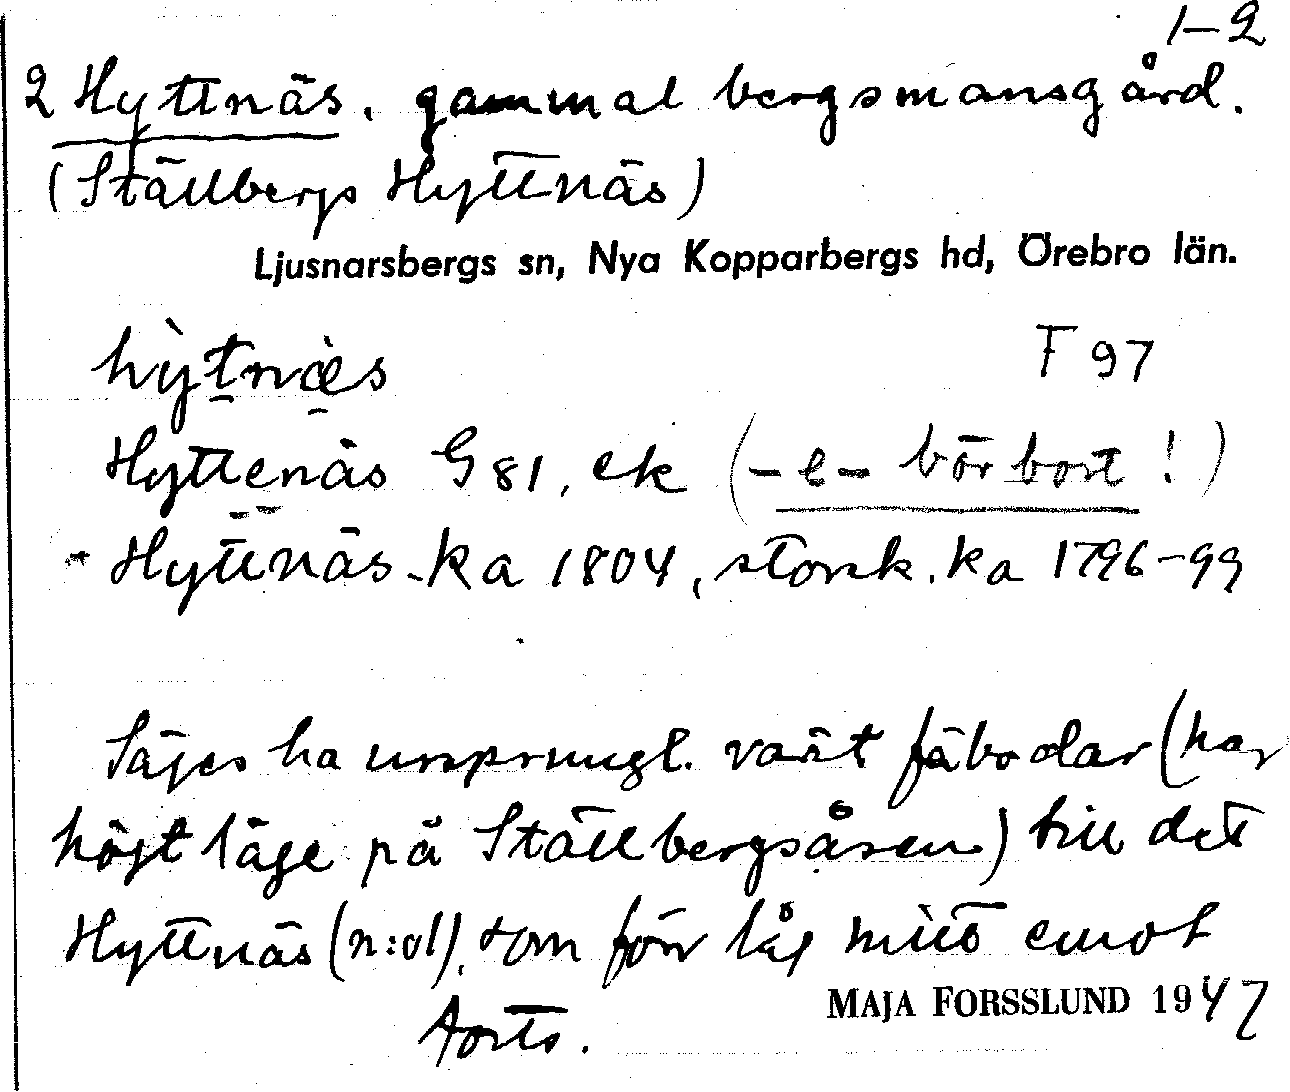 1–2
2 Hyttnäs, gammal bergsmansgård.
(Ställbergs Hyttnäs)
Ljusnarsbergs sn, Nya Kopparbergs hd, Örebro län.
hỳtnæ̀s F 97
Hyttenäs G 81, ek (-e- bör bort!)
- Hyttnäs - ka 1804, storsk. ka 1796-99
Säges ha ursprungl. varit fäbodar (har
högt läge på Ställbergsåsen) till det
Hyttnäs (n:ol), som förr låg mitt emot
forts.
MAJA FORSSLUND 1947